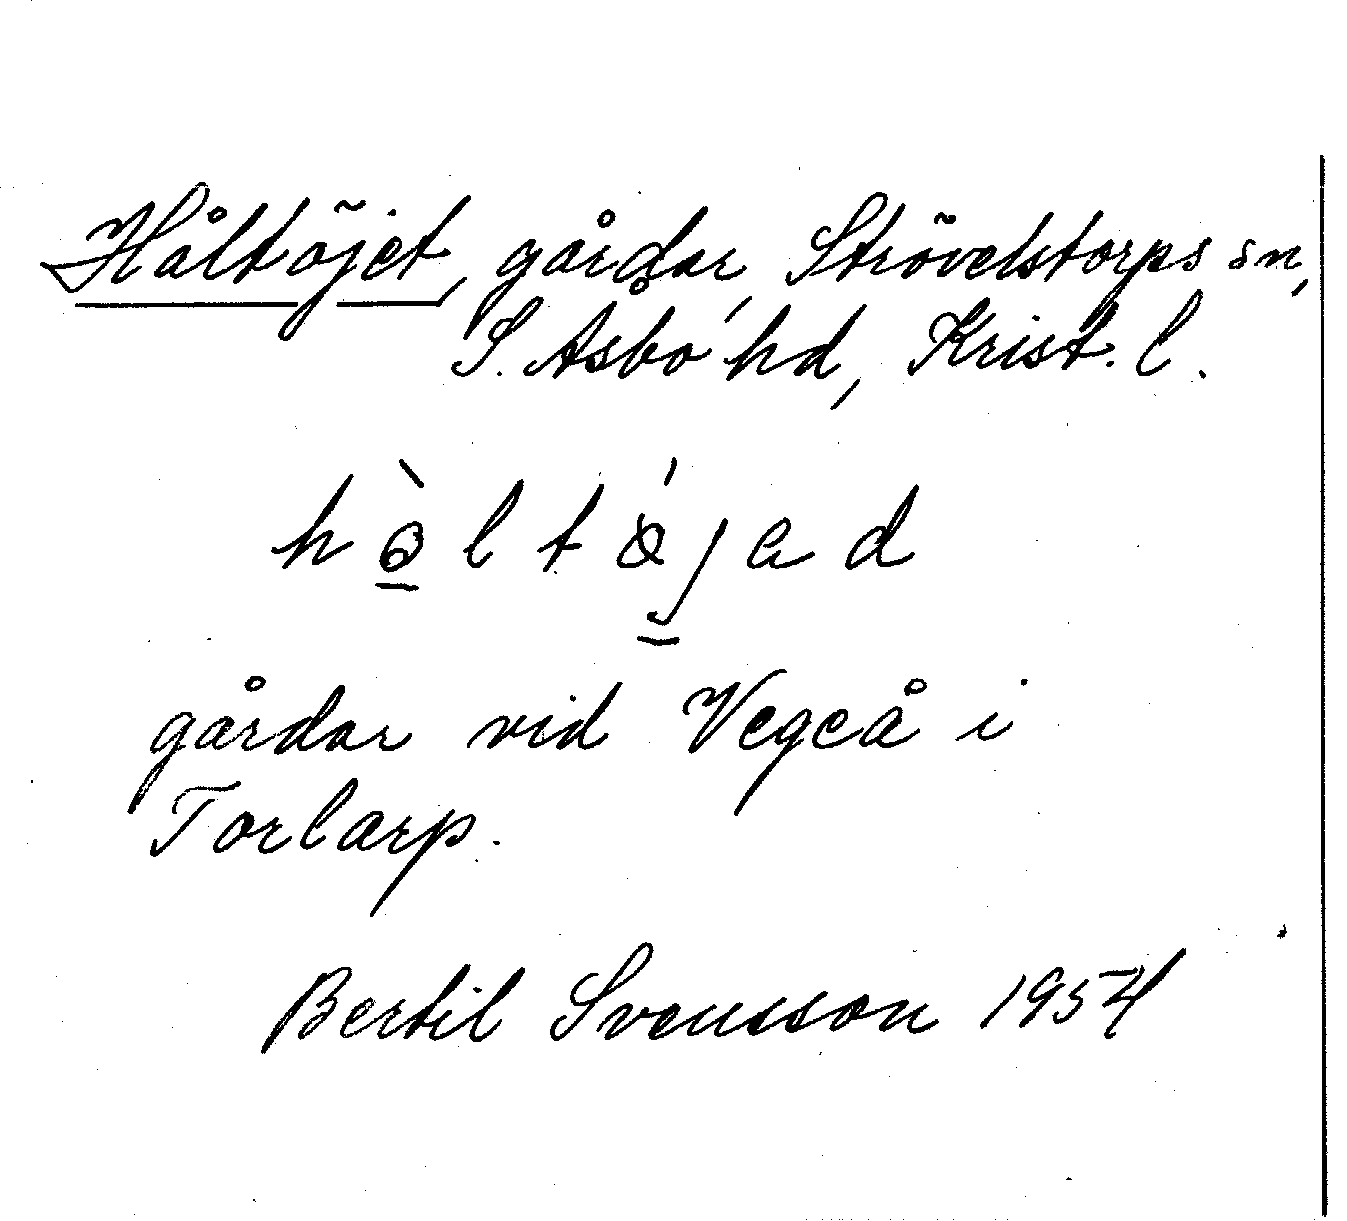 Håltöjet, gårdar, Strövelstorps sn,
S. Åsbo hd, Krist. l.
gårdar vid Vegeå i
Torlarp.
Bertil Svensson 1954